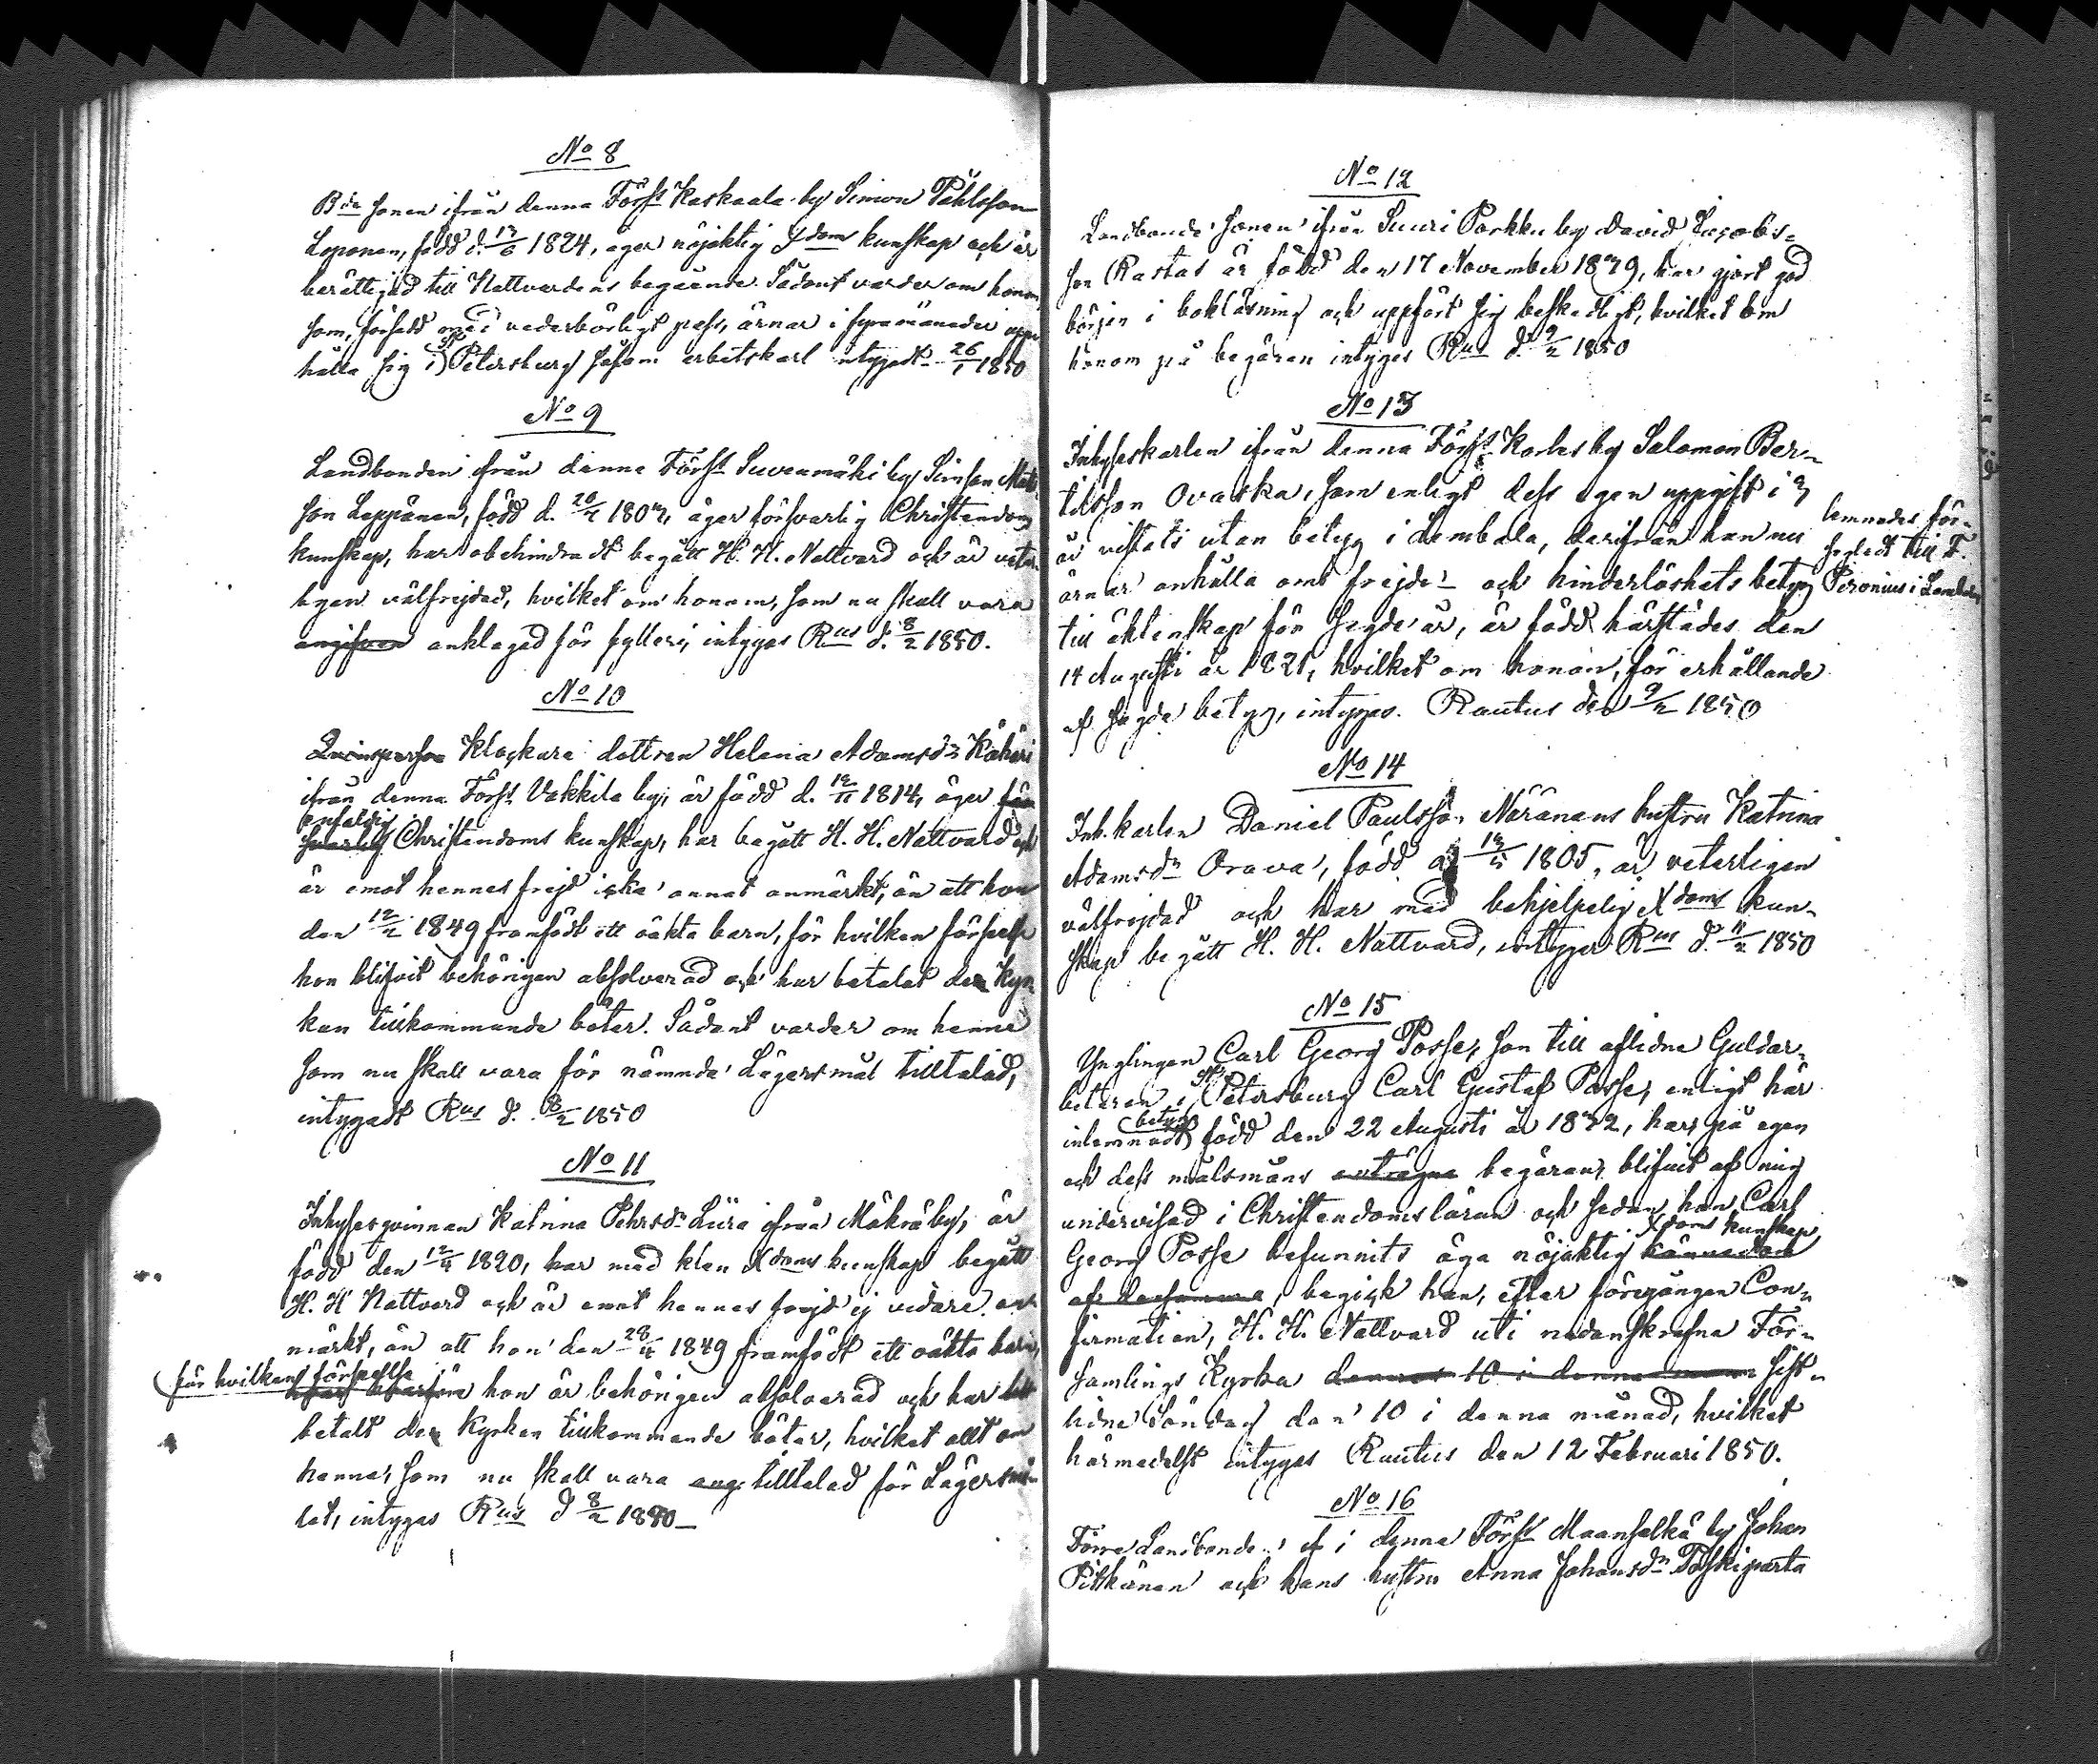 No 8
Bde sonen ifrån denna Förs:t Kaskaala by Simon Påhlsson
Loponen, född d. 13/6 1824, äger nöjaktig Xdoms kunskap och är
berättigad till Nattvardens begående. Sådant varder om honom,
som, försedd med vederbörligt pass, ärnar i fyra månader uppe
hålla sig i St Petersburg såsom arbetskarl intygadt 26/1 1850
No 9
Landbonden ifrån denna Förs:t Suvenmäki by Simson Mats
son Leppänen, född d. 20/2 1803, äger försvarlig Christendoms
kunskap, har obehindradt begått H. H. Nattvard och är veter-
ligen välfrejdad, hvilket om honom, som nu skall vara
angifven anklagad för fylleri, intygas Rus d. 8/2 1850.
No 10
Qvinsperson Klockare dottren Helena Adamsdr Kähäri
ifrån denna Förs:t Vakkila by, är född d. 12/11 1814, äger för
enfaldig
svarlig Christendoms kunskap, har begått H. H. Nattvard och
är emot hennes frejd icke annat anmärkt, än att hon
den 12/2 1849 framfödt ett oäkta barn, för hvilken förseelse
hon blifvit behörigen absolverad och har betalat der Kyr
kan tillkommande böter. Sådant varder om henne
som nu skall vara för nämnde Lägersmål tilltalad,
intygadt Rus d. 8/2 1850
No 11
Inhysesqvinnan Katrina Pehrsdr Liira ifrån Mäkrä by, är
född den 12/4 1820, har med klen Xdoms kunskap begått
H. H Nattvard och är emot hennes frejd ej vidare an
märkt, än att hon den 28/4 1849 framfödt ett oäkta barn,
för hvilkens förseelse
hon är behörigen absolverad och har
betalt der Kyrkan tillkommande böter, hvilket allt om
henne, som nu skall vara ang. tilltalad för Lägersmå-
let, intygas Rus d 8/2 1850
No 12
Landbonde sonen ifrån Suuri Porkku by David Jacobs-
son Rastas är född den 17 November 1839, har gjort god
början i bokläsning och uppfört sig beskedligt, hvilket om
honom på begäran intygas Rus d. 9/2 1850
No 13
Inhyseskarlen ifrån denna Förs:t Korles by Salomon Ber-
tilsson Ovaska, som enligt dess egen uppgift i 3
år vistats utan betyg i Lembala, derifrån han nu
ärnar anhålla om frejde- och hinderlöshets betyg
till äktenskap för sagde år, är född härstädes den
14 Augusti år 1821, hvilket om honom, för erhållande
af sagde betyg, intygas. Rautus den 9/2 1850
lemnades för-
segladt till F.
Peronius i Lembala
No 14
Inh. karlen Daniel Paulsson Näränens hustru Katrina
Adamsdr Orava, född d 13/5 1805, är veterligen
välfrejdad och har med behjelpelig Xdoms kun-
skap begått H. H. Nattvard, intygar Rus d. 11/2 1850
No 15
Ynglingen Carl Georg Posse, son till aflidne Guldar-
betaren i St Petersburg Carl Gustaf Posse, enligt här
betyg
inlemnadt född den 22 Augusti år 1832, har, på egen
och dess målsmäns enträgna begäran, blifvit af mig
undervisad i Christendomsläran och sedan han Carl
Xdoms kunskap,
Georg Posse befunnits äga nöjaktig kännedom
af densamma, begick han, efter föregången Con-
firmation, H. H. Nattvard uti nedanskrefne För-
samlings Kyrka dennes 10 i denna månad sist-
lidne Söndag den 10 i denna månad, hvilket
härmedelst intygas Rautus den 12 Februari 1850.
No 16
Förre Landbonden af i denna Förs:t Maanselkä by Johan
Pitkänen och hans hustru Anna Johansdr Paskiparta